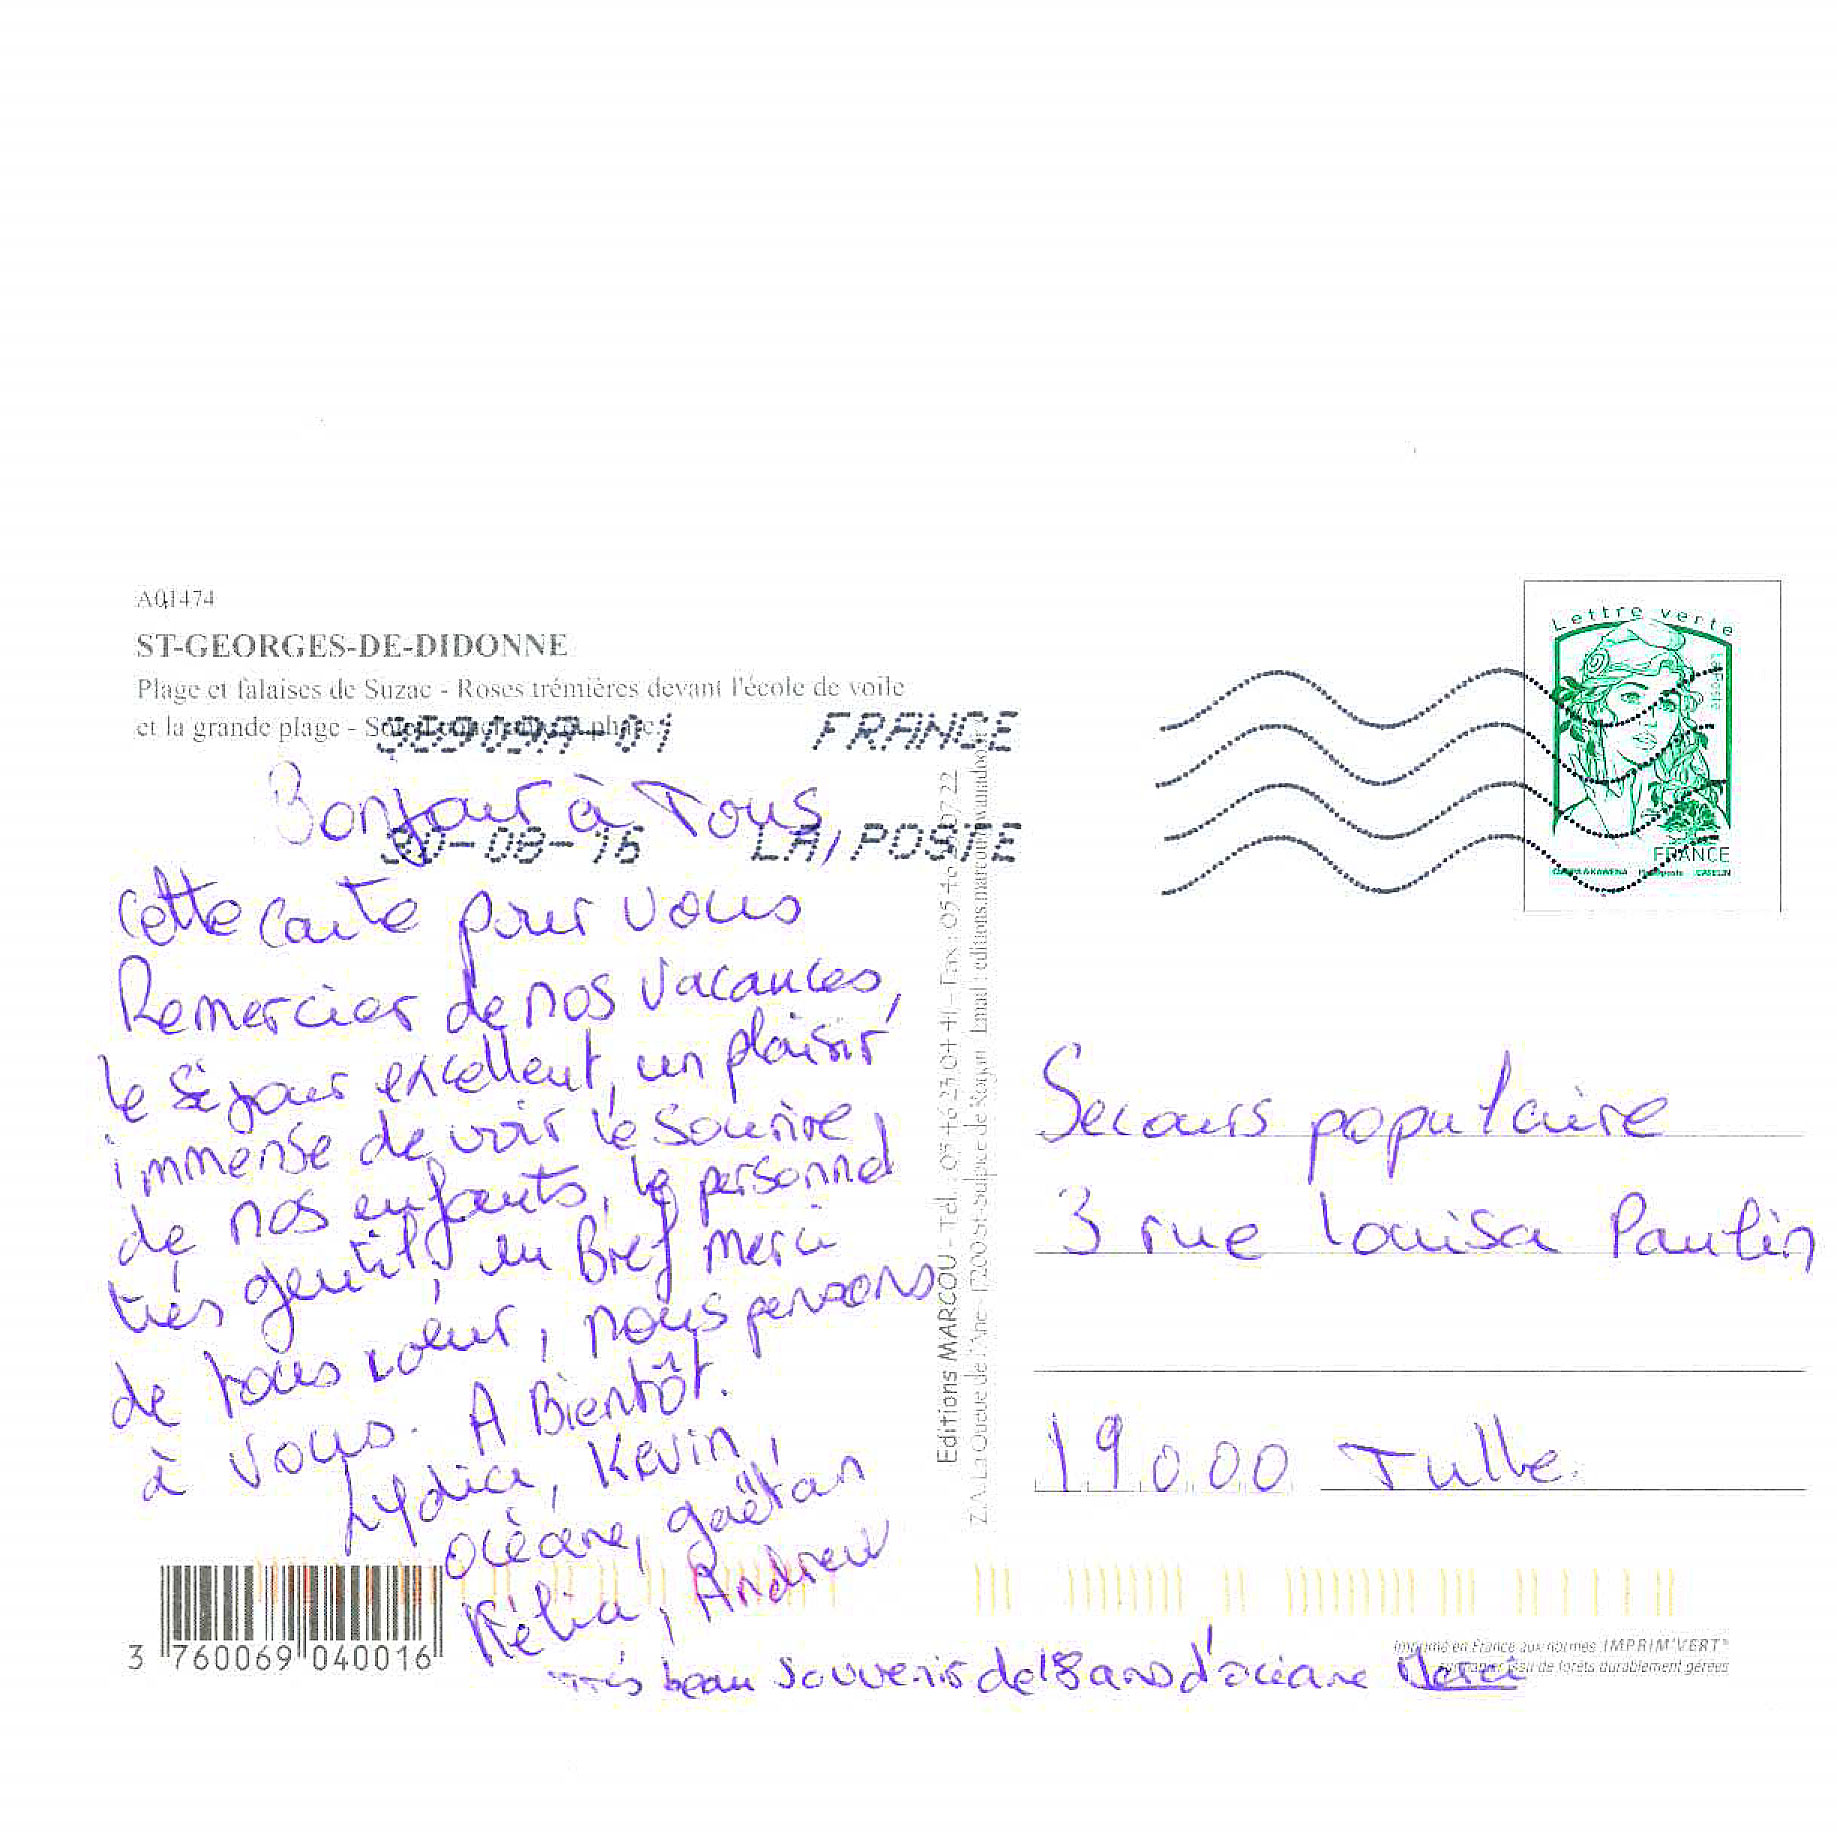 A01474
ST-GEORGES-DE-DIDONNE
Plage et falaises de Suzac - Roses trémières devant l'école de voile
et la grande plage - Soleil couchant phare.
36909A-01 FRANCE
30-08-16 LA POSTE
Lettre verte
La Poste
FRANCE
Bonjour à Tous,
cette carte pour vous
Remercier de nos vacances,
le séjour excellent, un plaisir
immense de voir le sourire
de nos enfants, le personnel
très gentil, en Bref merci
de tous cœur, nous pensons
à vous. A Bientôt.
Lydia, Kévin,
Océane, gaëtan
Kélia, Andrew
très beau souvenir de 18 ans d'océane Merci
Editions MARCOU - Tél. : 05 46 23 04 41 - Fax : 05 46 07 22
Z.A. La Queue de l'Ane - 17200 St-Sulpice de Royan Email : editions.marcou
Secours populaire
3 rue Louisa Paulin
19000 Tulle.
3 760069 040016
Imprimé en France aux normes IMPRIM'VERT®
papier issu de forêts durablement gérées